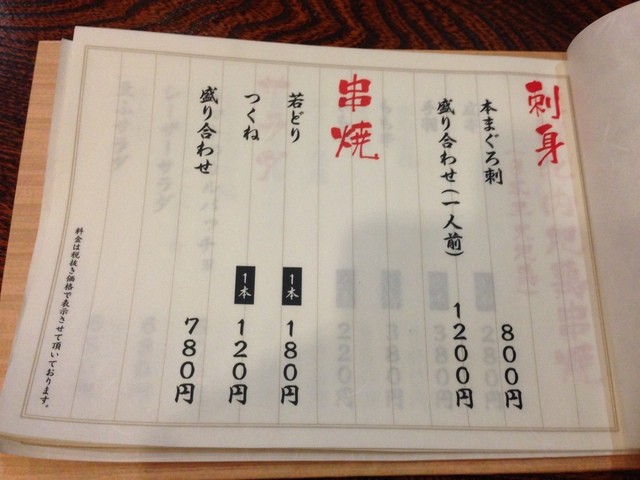 刺身
本まぐろ刺 800円
盛り合わせ(一人前) 1200円
串焼
若どり 1本 180円
つくね 1本 120円
盛り合わせ 780円
料金は税抜き価格で表示させて頂いております。